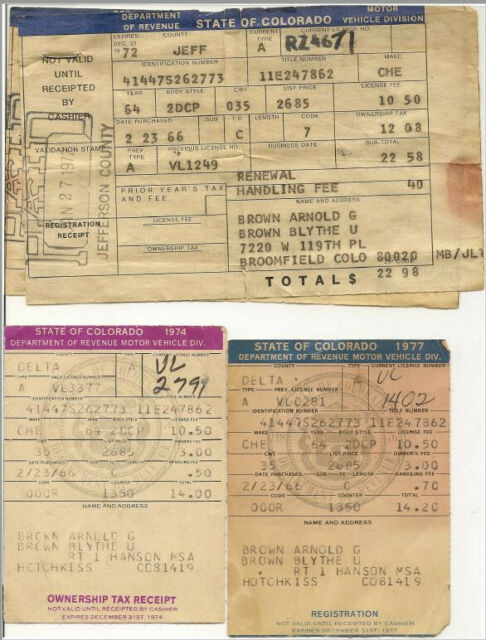 DEPARTMENT OF REVENUE STATE OF COLORADO MOTOR VEHICLE DIVISION
EXPIRES: DEC. 31 COUNTY CURRENT TYPE CURRENT LICENSE NO.
1972 JEFF A RZ4671
NOT VALID UNTIL RECEIPTED BY CASHIER
IDENTIFICATION NUMBER TITLE NUMBER MAKE
41447S262773 11E247862 CHE
YEAR BODY STYLE CWT LIST PRICE LICENSE FEE
64 2DCP 035 2685 10 50
DATE PURCHASED SUB T-C LENGTH CODE OWNERSHIP TAX
2 23 66 C 7 12 08
VALIDATION STAMP
PREV. TYPE PREVIOUS LICENSE NO. BUSINESS DATE SUB-TOTAL
A VL1249 22 58
JEFFERSON COUNTY
RENEWAL
HANDLING FEE 40
PRIOR YEAR'S TAX AND FEE
NAME AND ADDRESS
LICENSE FEE
BROWN ARNOLD G
BROWN BLYTHE U
REGISTRATION RECEIPT
7220 W 119TH PL
OWNERSHIP TAX
BROOMFIELD COLO 80020 MB/JLT
TOTAL $ 22 98
STATE OF COLORADO 1974
DEPARTMENT OF REVENUE MOTOR VEHICLE DIV.
DELTA A VL
A VL3377 2791
41447S262773 11E247862
CHE 64 2DCP 10.50
35 2685 3.00
2/23/66 C .50
000R 1350 14.00
NAME AND ADDRESS
BROWN ARNOLD G
BROWN BLYTHE U
RT 1 HANSON MSA
HOTCHKISS CO81419
OWNERSHIP TAX RECEIPT
NOT VALID UNTIL RECEIPTED BY CASHIER
EXPIRES DECEMBER 31ST. 1974
STATE OF COLORADO 1977
DEPARTMENT OF REVENUE MOTOR VEHICLE DIV.
DELTA A VL
A VL0281 1402
41447S262773 11E247862
CHE 64 2DCP 10.50
35 2685 3.00
2/23/66 C .70
000R 1350 14.20
NAME AND ADDRESS
BROWN ARNOLD G
BROWN BLYTHE U
RT 1 HANSON MSA
HOTCHKISS CO81419
REGISTRATION
NOT VALID UNTIL RECEIPTED BY CASHIER
EXPIRES DECEMBER 31ST. 1977